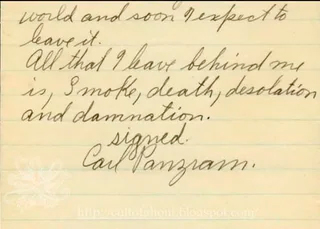 world and soon I expect to
leave it.
All that I leave behind me
is, Smoke, death, desolation
and damnation.
signed.
Carl Panzram.